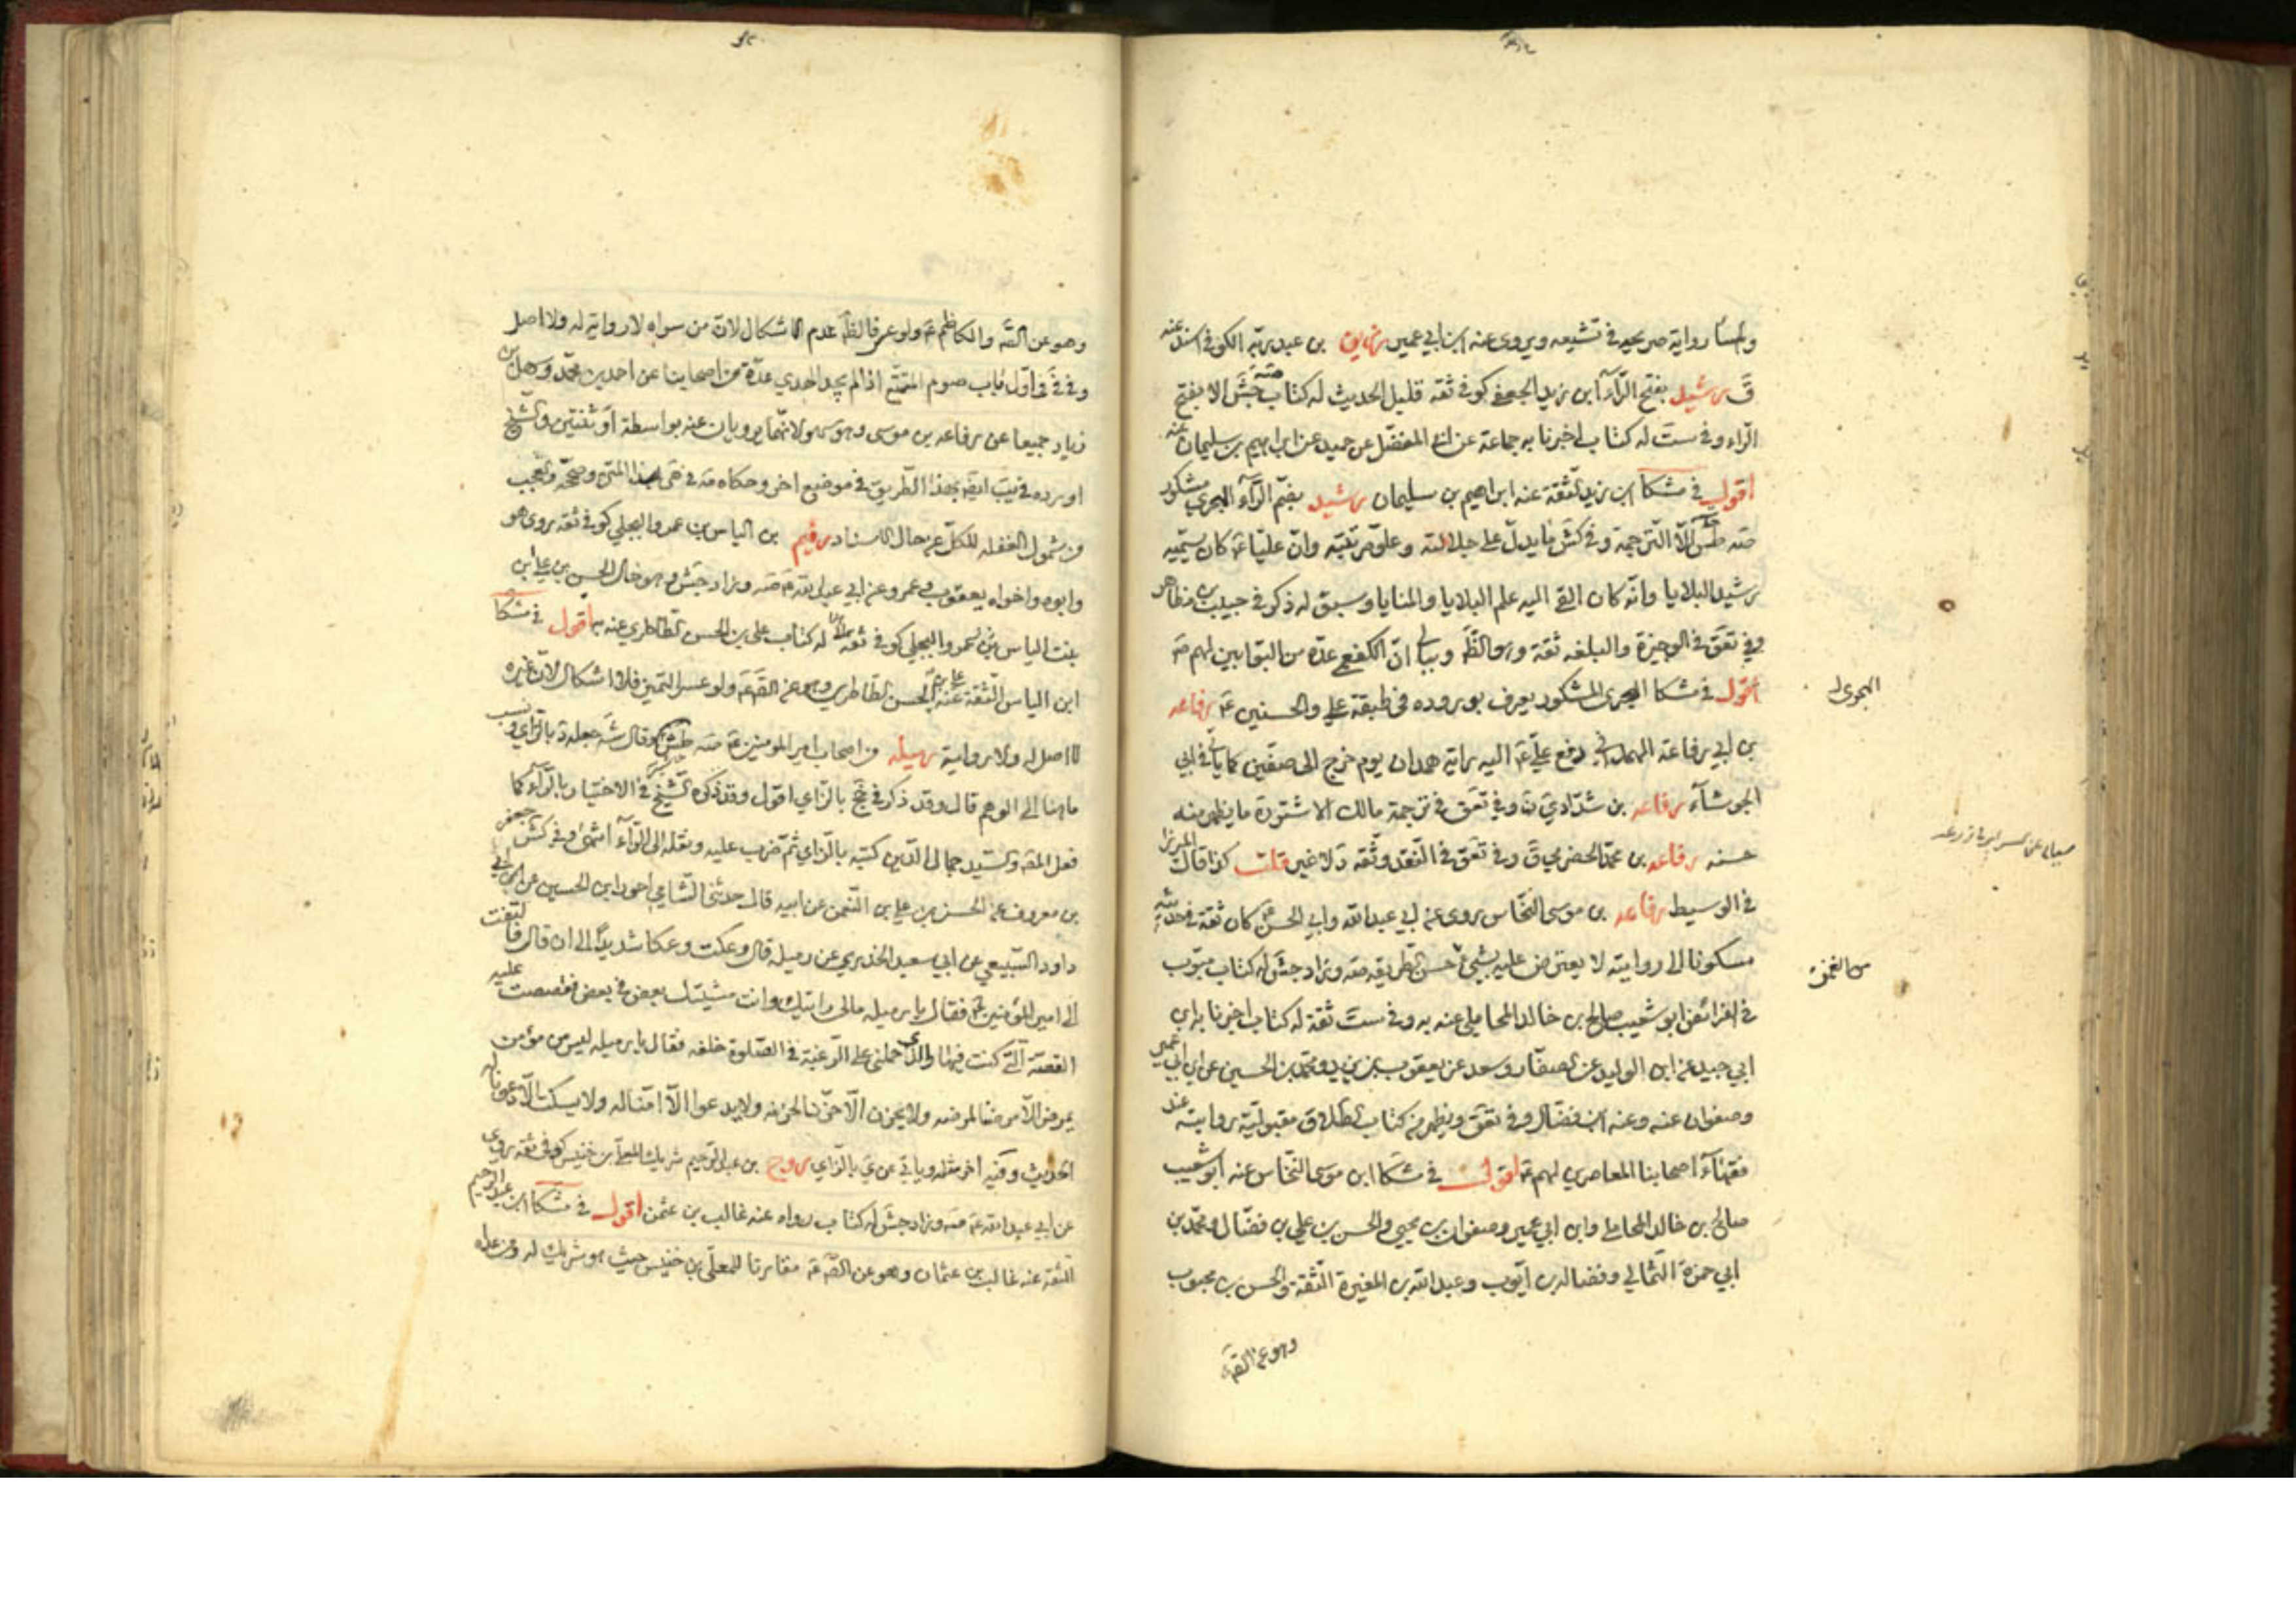 رواية صريحة في تشيعه ويروي عنه ابن ابي عمير رزيق بن عبد ربه الكوفي اسند عنه
ق رشيد بفتح الراء ابن زيد الجعفي كوفي ثقة قليل الحديث له كتاب صه جش الا بفتح
الراء وفي ست له كتاب اخبرنا به جماعة عن ابي المفضل عن حميد عن ابراهيم بن سليمان عنه
اقول في مشكا ابن زيد الثقة عنه ابراهيم بن سليمان رشيد بضم الراء الهجري مشكور
صه الا الترجمة وفي كش ما يدل على جلالته وعلو مرتبته وان عليا ع كان يسميه
رشيد البلايا وانه كان القي اليه علم البلايا والمنايا وسبق له ذكر في حبيب بن مظاهر
وفي تعق في الوجيزة والبلغه ثقة وهو الظ وببالي ان الكفعمي عده من البوابين لهم ع
اقول في مشكا الهجري المشكور يعرف بوروده في طبقة علي والحسنين ع رفاعه
بن ابي رفاعة الهمداني دفع علي ع اليه راية همدان يوم خرج الى صفين كما ياتي في ابي
الجوشاء رفاعه بن شداد ي ن وفي تعق في ترجمة مالك الاشتر ره ما يظهر منه
حسنه رفاعه بن محمد الحضرمي ق وفي تعق في النقد وثقه د لا غير قلت كذا قال الميرزا
في الوسيط رفاعه بن موسى النخاس روى عن ابي عبد الله وابي الحسن ع كان ثقة في حديثه
مسكونا الى روايته لا يعترض عليه بشيء حسن الطريقه صه وزاد جش له كتاب مبوب
في الفرائض ابو شعيب صالح بن خالد المحاملي عنه به وفي ست ثقة له كتاب اخبرنا به ابن
ابي جيد عن ابن الوليد عن الصفار وسعد عن يعقوب بن يزيد ومحمد بن الحسين عن ابن ابي عمير
وصفوان عنه وعنه ابن فضال وفي تعق ويظهر من كتاب الطلاق مقبولية روايته عند
فقهاء اصحابنا المعاصرين لهم ع اقول في مشكا ابن موسى النخاس عنه ابو شعيب
صالح بن خالد المحاملي وابن ابي عمير وصفوان بن يحيى والحسن بن علي بن فضال ومحمد بن
ابي حمزة الثمالي وفضالة بن ايوب وعبد الله بن المغيرة الثقة والحسن بن محبوب
وهو عن الق
الهجري
وهو عن الق والكاظم ع ولو عسر فالظ عدم الاشكال لان من سواه لا رواية له ولا اصل
في اول باب صوم المتمتع اذا لم يجد الهدي عدة من اصحابنا عن احمد بن محمد وسهل بن
زياد جميعا عن رفاعه بن موسى وهو سهو لانهما يرويان عنه بواسطة او ثنتين والشيخ
اورده في يب ايضا بهذا الطريق في موضع اخر وحكاه في بهذا المتن وصححه وتعجب
من شمول الغفله للكل عن حال الاسناد رقيم بن الياس بن عمرو البجلي كوفي ثقة روى هو
وابوه واخواه يعقوب وعمرو عن ابي عبد الله ع صه وزاد جش وهو خال الحسن بن علي ابن
بنت الياس بن عمرو البجلي كوفي ثقة له كتاب علي بن الحسن الطاطري عنه به اقول في مشكا
ابن الياس الثقة عنه علي بن الحسن الطاطري وهو عن الق ع ولو عسر التميز فلا اشكال لان غيره
لا اصل له ولا رواية رميله من اصحاب امير المؤمنين ع صه وقال جعله د بالزاي ونسب
ما هنا الى الوهم قال وقد ذكر في جخ بالزاي اقول وقد ذكره الشيخ في الاختيار بالراء كما
فعل المص والسيد جمال الدين كتبه بالزاي ثم ضرب عليه ونقله الى الراء انتهى وفي كش جعفر
بن معروف عن الحسن بن علي بن النعمن عن ابيه قال حدثني الشامي احور ابن الحسين عن ابي
داود السبيعي عن ابي سعيد الخدري عن رميله قال وعكت وعكا شديدا الى ان قال فالتفت
الى امير المؤمنين ع فقال يا رميله مالي رايتك وانت مشتبك بعض في بعض فقصصت عليه
القصة التي كنت فيها والذي حملني على الرغبة في الصلوة خلفه فقال يا رميله ليس من مؤمن
يمرض الا مرضنا لمرضه ولا يحزن الا حزنا لحزنه ولا يدعوا الا امنا له ولا يسكت الا دعونا له
الحديث وفيه اخر مثله وياتي عن ي بالزاي روح بن عبد الرحيم شريك المعلى بن خنيس كوفي ثقة روى
عن ابي عبد الله ع صه وزاد جش له كتاب رواه عنه غالب بن عثمن اقول في مشكا ابن عبد الرحيم
الثقة عنه غالب بن عثمان وهو عن الق ع مقارنا للمعلى بن خنيس حيث هو شريك له ومن عداه